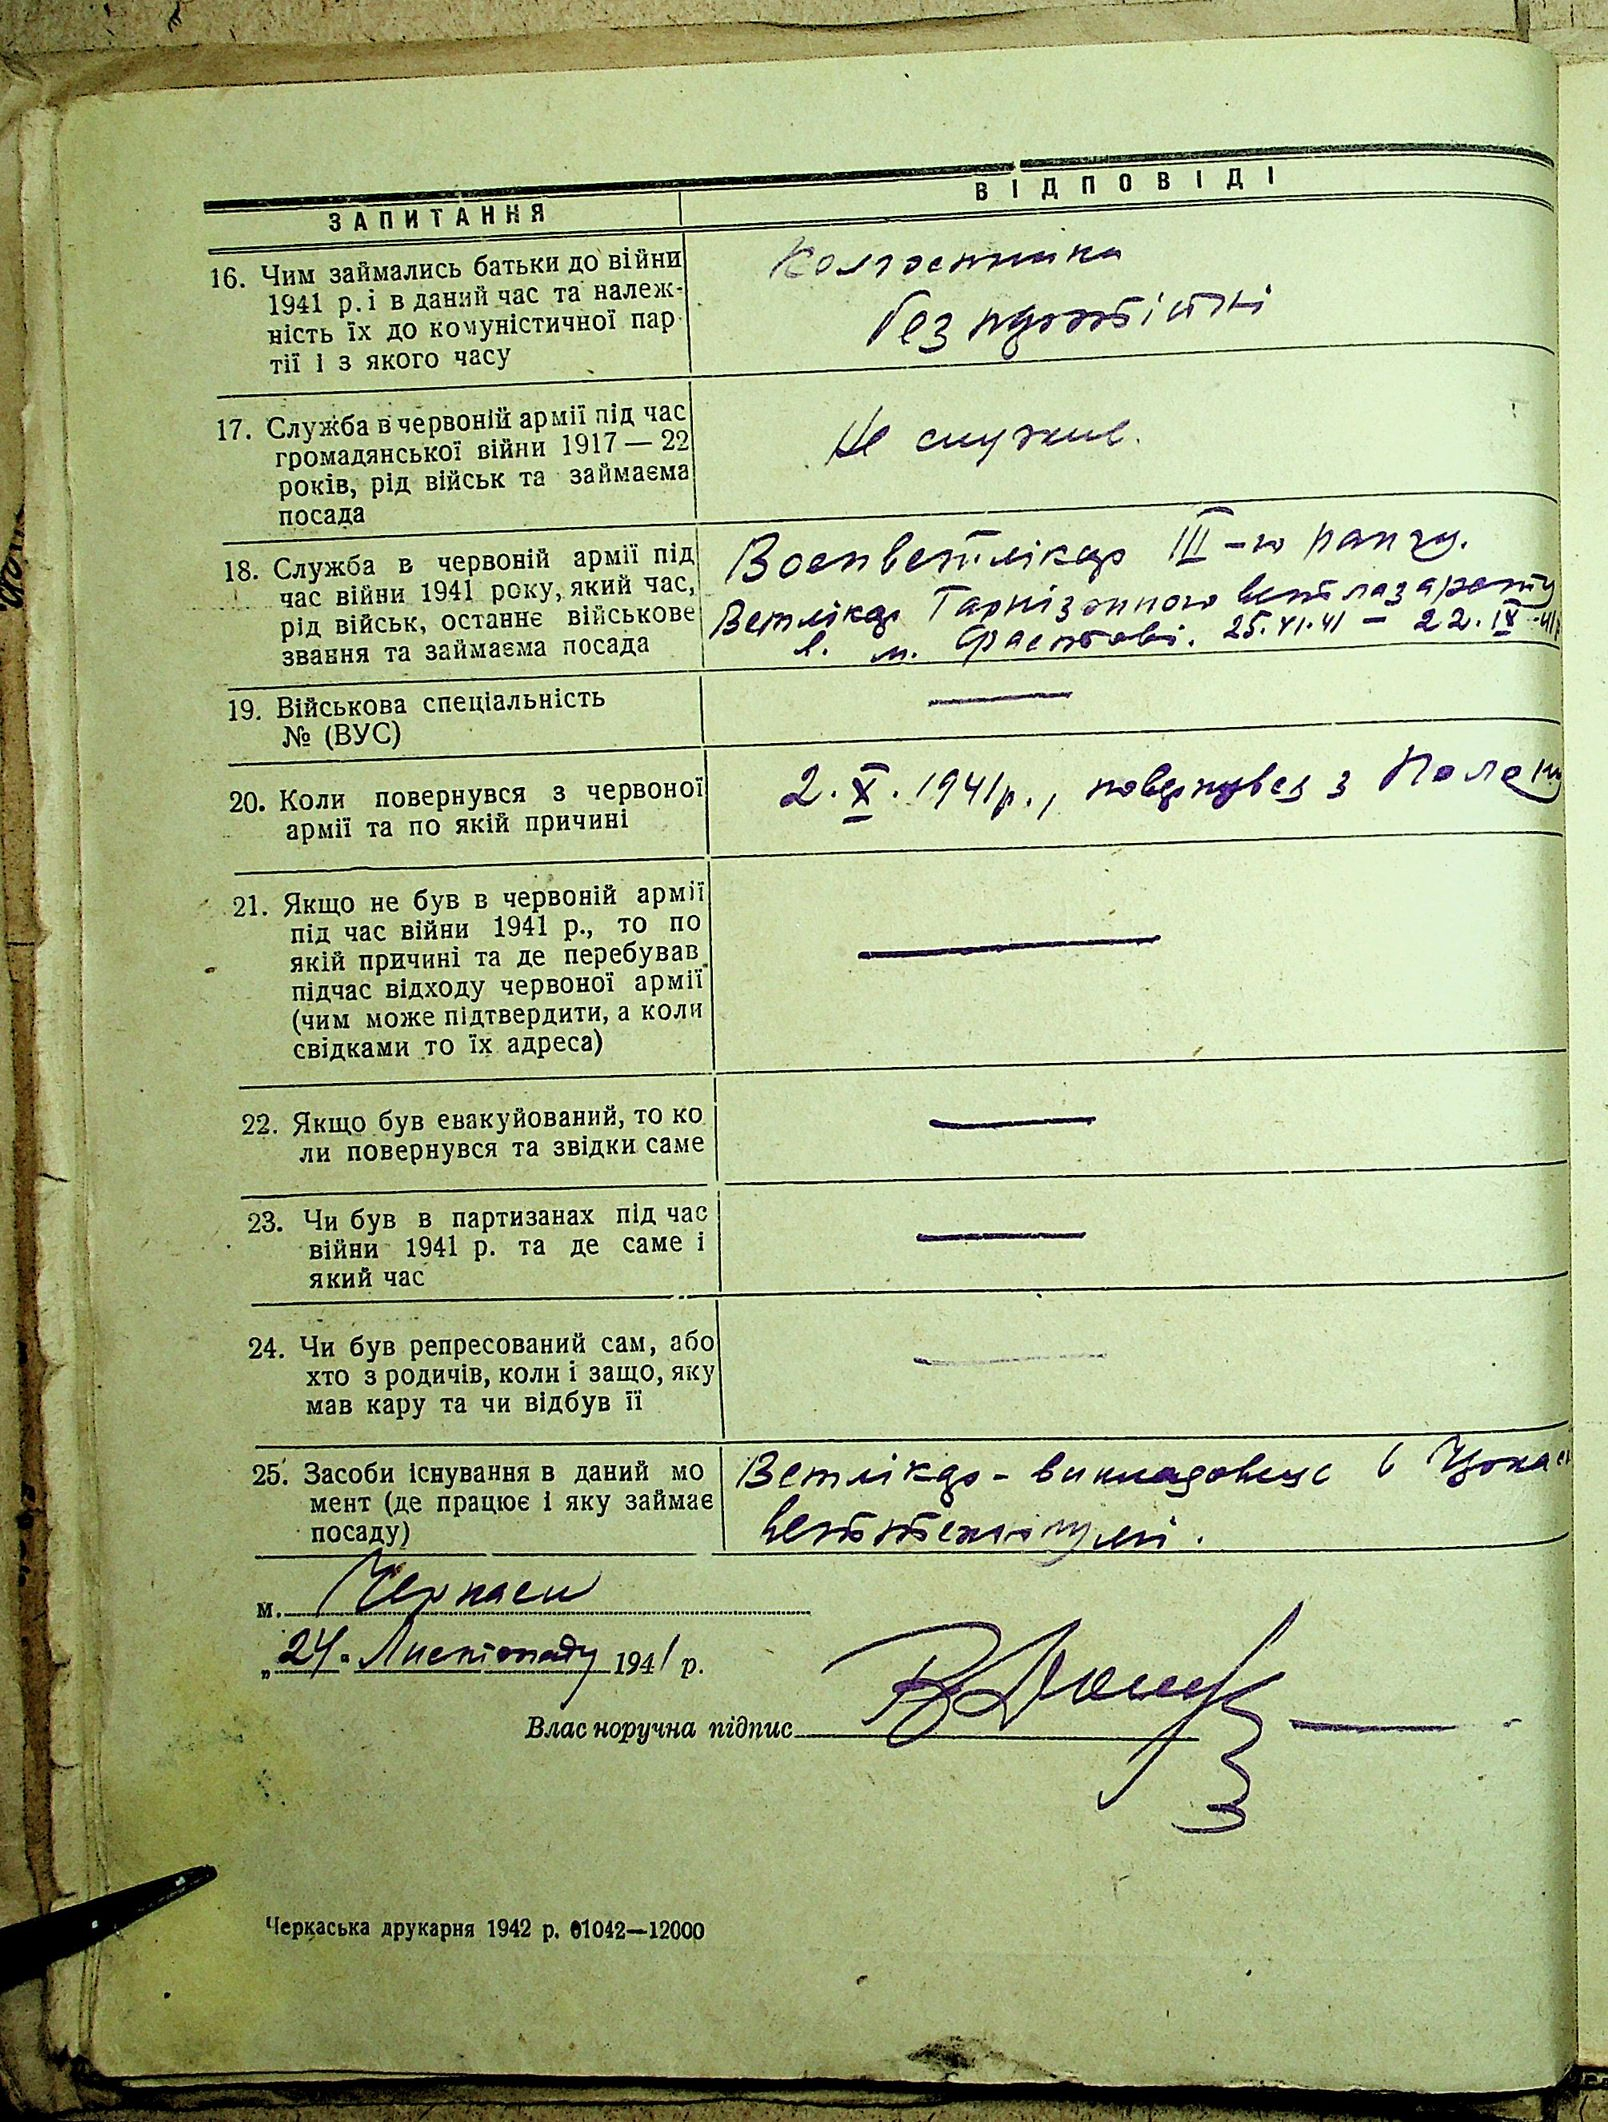 ЗАПИТАННЯ
ВІДПОВІДІ
16. Чим займались батьки до війни
1941 р. і в даний час та належ-
ність їх до комуністичної пар-
тії і з якого часу
Колгоспники
безпартійні
17. Служба в червоній армії під час
громадянської війни 1917 — 22
років, рід військ та займаєма
посада
Не служив.
18. Служба в червоній армії під
час війни 1941 року, який час,
рід військ, останнє військове
звання та займаєма посада
Воєнветлікар III-го рангу.
Ветлікар Гарнізонного ветлазарету
в м. Фастові. 25.VI.41 – 22.IX.41
19. Військова спеціальність
№ (ВУС)
—
20. Коли повернувся з червоної
армії та по якій причині
2.X.1941р., повернувся з Полону
21. Якщо не був в червоній армії
під час війни 1941 р., то по
якій причині та де перебував
підчас відходу червоної армії
(чим може підтвердити, а коли
свідками то їх адреса)
—
22. Якщо був евакуйований, то ко
ли повернувся та звідки саме
—
23. Чи був в партизанах під час
війни 1941 р. та де саме і
який час
—
24. Чи був репресований сам, або
хто з родичів, коли і защо, яку
мав кару та чи відбув її
—
25. Засоби існування в даний мо
мент (де працює і яку займає
посаду)
Ветлікар - викладовець в
веттехнікумі.
м. Черкаси
„24" Листопаду 1941 р.
Власноручна підпис
Черкаська друкарня 1942 р. 01042—12000